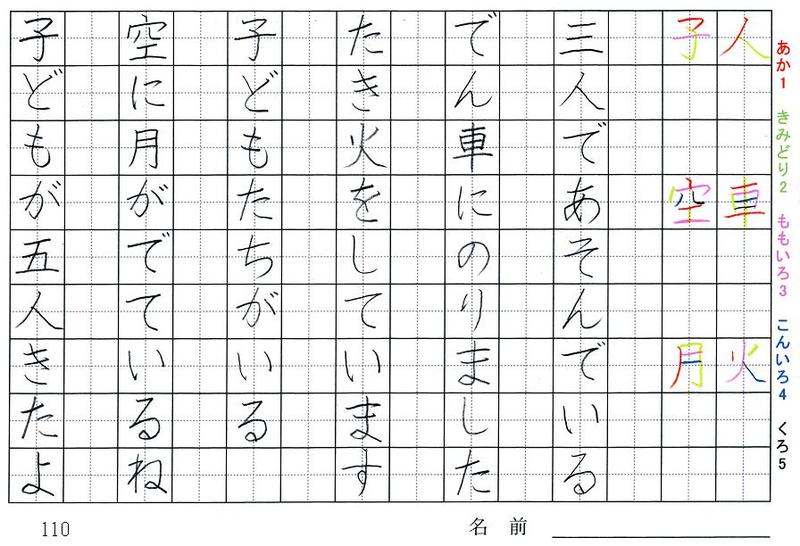 あか1 きみどり2 ももいろ3 こんいろ4 くろ5
人 車 火
子 空 月
三人であそんでいる
でん車にのりました
たき火をしています
子どもたちがいる
空に月がでているね
子どもが五人きたよ
110
名前